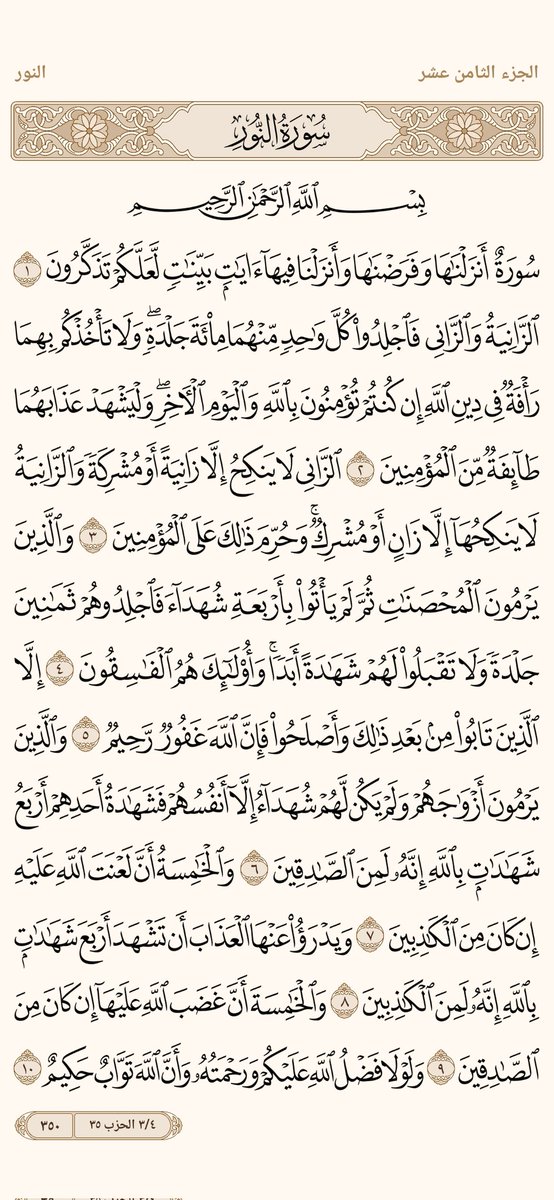 الجزء الثامن عشر
النور
سُورَةُ النُّورِ
بِسْمِ اللَّهِ الرَّحْمَٰنِ الرَّحِيمِ
سُورَةٌ أَنزَلْنَٰهَا وَفَرَضْنَٰهَا وَأَنزَلْنَا فِيهَآ ءَايَٰتٍۭ بَيِّنَٰتٍ لَّعَلَّكُمْ تَذَكَّرُونَ ١
ٱلزَّانِيَةُ وَٱلزَّانِى فَٱجْلِدُوا۟ كُلَّ وَٰحِدٍ مِّنْهُمَا مِا۟ئَةَ جَلْدَةٍ ۖ وَلَا تَأْخُذْكُم بِهِمَا
رَأْفَةٌ فِى دِينِ ٱللَّهِ إِن كُنتُمْ تُؤْمِنُونَ بِٱللَّهِ وَٱلْيَوْمِ ٱلْءَاخِرِ ۖ وَلْيَشْهَدْ عَذَابَهُمَا
طَآئِفَةٌ مِّنَ ٱلْمُؤْمِنِينَ ٢ ٱلزَّانِى لَا يَنكِحُ إِلَّا زَانِيَةً أَوْ مُشْرِكَةً وَٱلزَّانِيَةُ
لَا يَنكِحُهَآ إِلَّا زَانٍ أَوْ مُشْرِكٌ ۚ وَحُرِّمَ ذَٰلِكَ عَلَى ٱلْمُؤْمِنِينَ ٣ وَٱلَّذِينَ
يَرْمُونَ ٱلْمُحْصَنَٰتِ ثُمَّ لَمْ يَأْتُوا۟ بِأَرْبَعَةِ شُهَدَآءَ فَٱجْلِدُوهُمْ ثَمَٰنِينَ
جَلْدَةً وَلَا تَقْبَلُوا۟ لَهُمْ شَهَٰدَةً أَبَدًا ۚ وَأُو۟لَٰٓئِكَ هُمُ ٱلْفَٰسِقُونَ ٤ إِلَّا
ٱلَّذِينَ تَابُوا۟ مِنۢ بَعْدِ ذَٰلِكَ وَأَصْلَحُوا۟ فَإِنَّ ٱللَّهَ غَفُورٌ رَّحِيمٌ ٥ وَٱلَّذِينَ
يَرْمُونَ أَزْوَٰجَهُمْ وَلَمْ يَكُن لَّهُمْ شُهَدَآءُ إِلَّآ أَنفُسُهُمْ فَشَهَٰدَةُ أَحَدِهِمْ أَرْبَعُ
شَهَٰدَٰتٍۭ بِٱللَّهِ إِنَّهُۥ لَمِنَ ٱلصَّٰدِقِينَ ٦ وَٱلْخَٰمِسَةُ أَنَّ لَعْنَتَ ٱللَّهِ عَلَيْهِ
إِن كَانَ مِنَ ٱلْكَٰذِبِينَ ٧ وَيَدْرَؤُا۟ عَنْهَا ٱلْعَذَابَ أَن تَشْهَدَ أَرْبَعَ شَهَٰدَٰتٍۭ
بِٱللَّهِ إِنَّهُۥ لَمِنَ ٱلْكَٰذِبِينَ ٨ وَٱلْخَٰمِسَةَ أَنَّ غَضَبَ ٱللَّهِ عَلَيْهَآ إِن كَانَ مِنَ
ٱلصَّٰدِقِينَ ٩ وَلَوْلَا فَضْلُ ٱللَّهِ عَلَيْكُمْ وَرَحْمَتُهُۥ وَأَنَّ ٱللَّهَ تَوَّابٌ حَكِيمٌ ١٠
٣/٤ الحزب ٣٥
٣٥٠